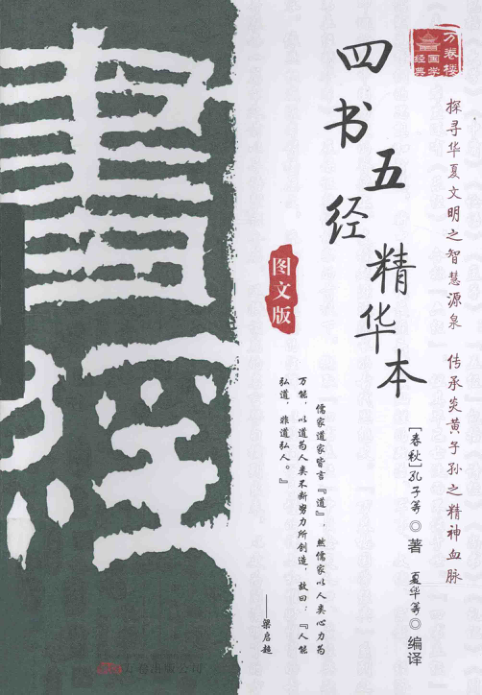 万卷楼
国学
经典
探寻华夏文明之智慧源泉 传承炎黄子孙之精神血脉
四书五经精华本
图文版
[春秋]孔子等◎著 夏华等◎编译
儒家道家皆言『道』，然儒家以人类心力为
万能，以道为人类不断努力所创造，故曰：『人能
弘道，非道弘人。』
——梁启超
書經
万卷出版公司